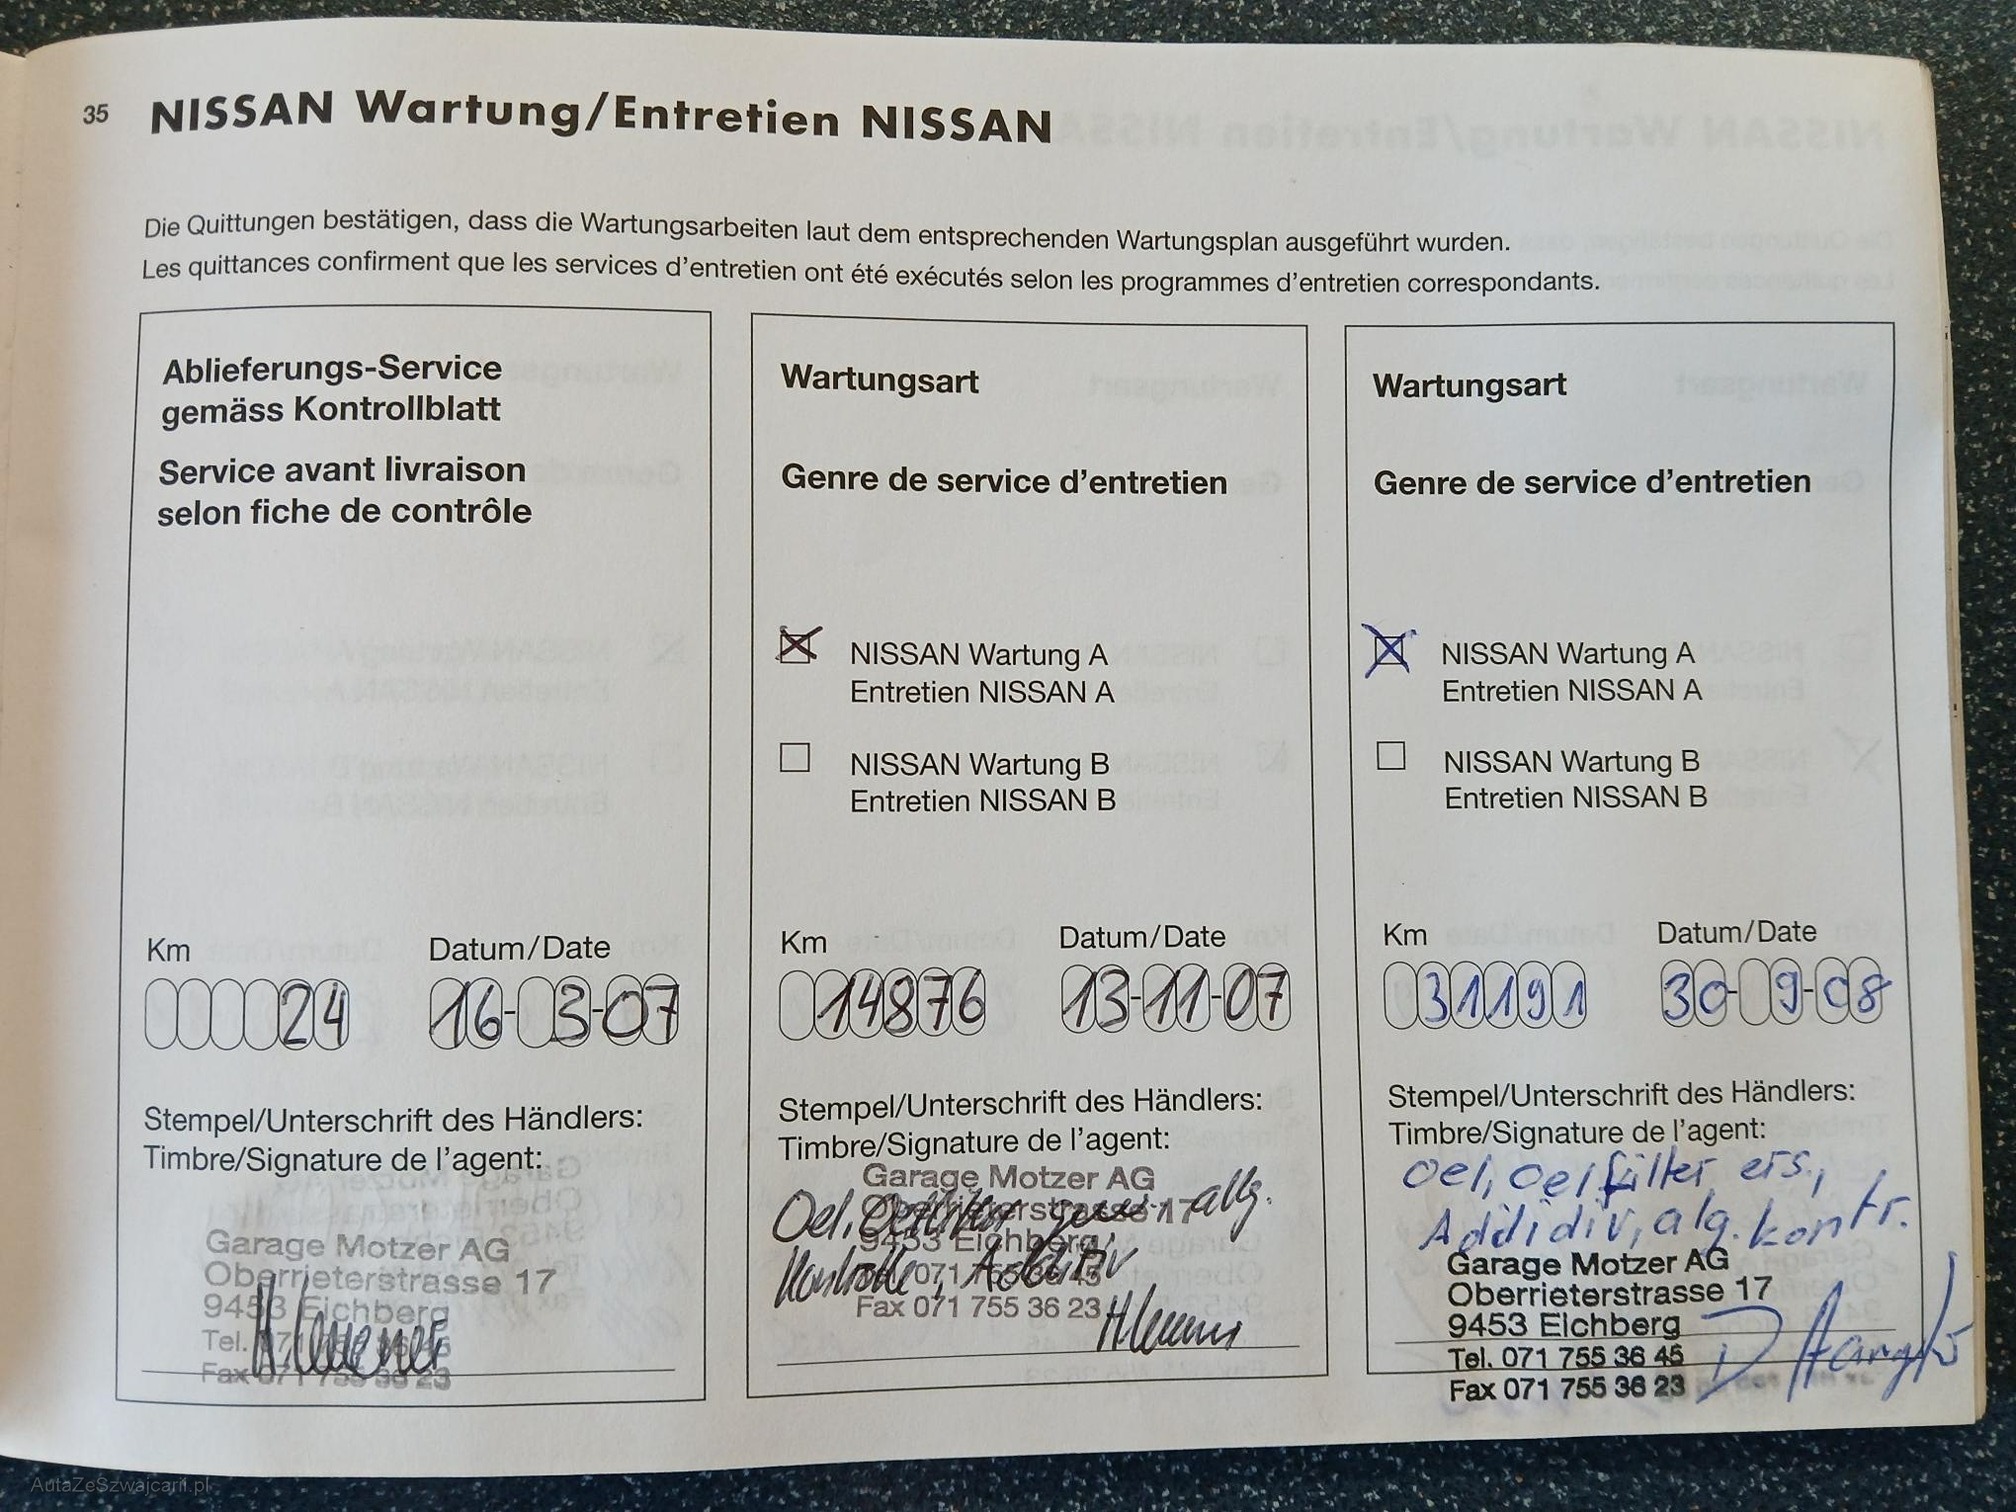 35 NISSAN Wartung/Entretien NISSAN
Die Quittungen bestätigen, dass die Wartungsarbeiten laut dem entsprechenden Wartungsplan ausgeführt wurden.
Les quittances confirment que les services d'entretien ont été exécutés selon les programmes d'entretien correspondants.
Ablieferungs-Service
gemäss Kontrollblatt
Service avant livraison
selon fiche de contrôle
Km Datum/Date
24 16-3-07
Stempel/Unterschrift des Händlers:
Timbre/Signature de l'agent:
Garage Motzer AG
Oberrieterstrasse 17
9453 Eichberg
Tel. 071
Fax 071 755 36 23
Wartungsart
Genre de service d'entretien
NISSAN Wartung A
Entretien NISSAN A
NISSAN Wartung B
Entretien NISSAN B
Km Datum/Date
14876 13-11-07
Stempel/Unterschrift des Händlers:
Timbre/Signature de l'agent:
Garage Motzer AG
Oel, allg.
Oberrieterstrasse 17
9453 Eichberg
Kontrolle, Additiv
071 755 36 45
Fax 071 755 36 23
Wartungsart
Genre de service d'entretien
NISSAN Wartung A
Entretien NISSAN A
NISSAN Wartung B
Entretien NISSAN B
Km Datum/Date
31191 30-9-08
Stempel/Unterschrift des Händlers:
Timbre/Signature de l'agent:
Oel, Oelfilter ers,
Addidiv, alg. kontr.
Garage Motzer AG
Oberrieterstrasse 17
9453 Eichberg
Tel. 071 755 36 45
Fax 071 755 36 23
AutaZeSzwajcarii.pl